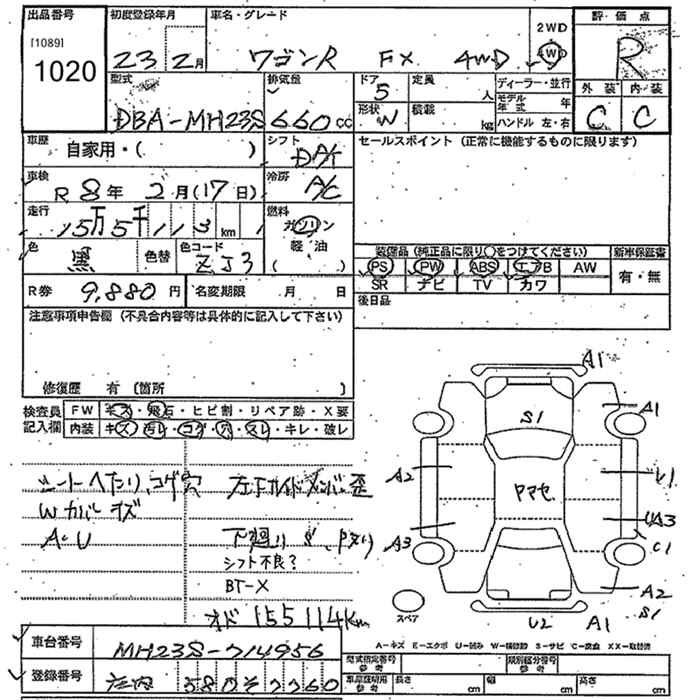 出品番号
[1089]
1020
初度登録年月
23 年 2 月
車名・グレード
ワゴンR FX 4WD
2WD
4WD
評価点
R
外装 内装
C C
型式
DBA-MH23S
排気量
660 cc
ドア
5
定員
人
形状
W
積載
kg
ディーラー・並行
モデル年式 年
ハンドル 左・右
車歴
自家用・( )
シフト
DAT
セールスポイント(正常に機能するものに限ります)
車検
R 8 年 2 月 (17 日)
冷房
A/C
走行
15万5千113 km
燃料
ガソリン
軽油
( )
色
黒
色替
色コード
ZJ3
装備品(純正品に限り○をつけてください)
新車保証書
PS PW ABS エアB AW
SR ナビ TV カワ
有・無
R券
9,880 円
名変期限 月 日
後日品
注意事項申告欄(不具合内容等は具体的に記入して下さい)
修復歴 有 〔箇所 〕
検査員
記入欄
FW キズ・飛石・ヒビ割・リペア跡・X要
内装 キズ・汚レ・コゲ・穴・スレ・キレ・破レ
シートヘたり、コゲ穴
Wカバーキズ
A・U
左下サイドメンバー歪
下廻りS、
シフト不良?
BT-X
オド 155114km
A1
A1
S1
A2
ヤマセ
A3
UA3
C1
A2
S1
U2
A1
スペア
車台番号
MH23S-714956
登録番号
580 そ 7760
A-キズ E-エクボ U-凹み S-サビ C-腐食 XX-取替済
型式指定番号
参考
類別区分番号
参考
車庫証明用
参考
長さ cm
幅 cm
高さ cm